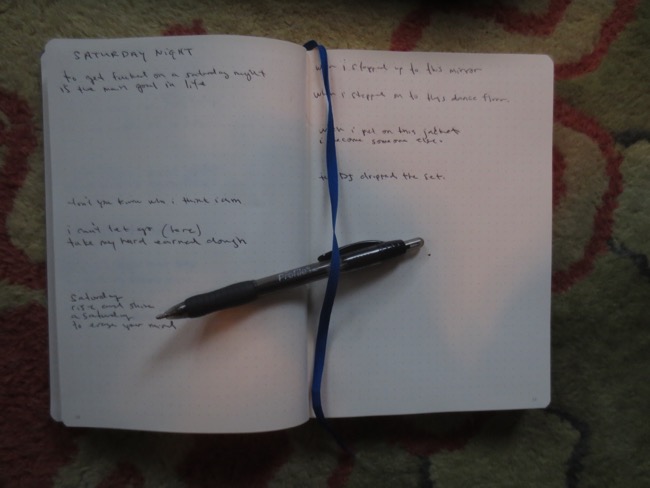 SATURDAY NIGHT
to get fucked on a saturday night
is the main goal in life
don't you know who i think i am
i can't let go (here)
take my hard earned dough
Saturday
rise and shine
a Saturday
to erase your mind
when i stepped up to this mirror
when i stepped on to this dance floor
when i put on this
i become someone else.
the DJ dropped the set.